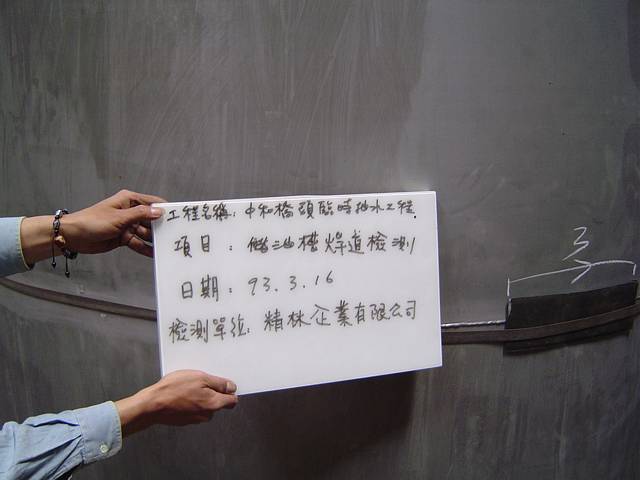 工程名稱：中和橋頭臨時抽水工程.
項目：儲油槽焊道檢測
日期：93.3.16
檢測單位：精林企業有限公司
3